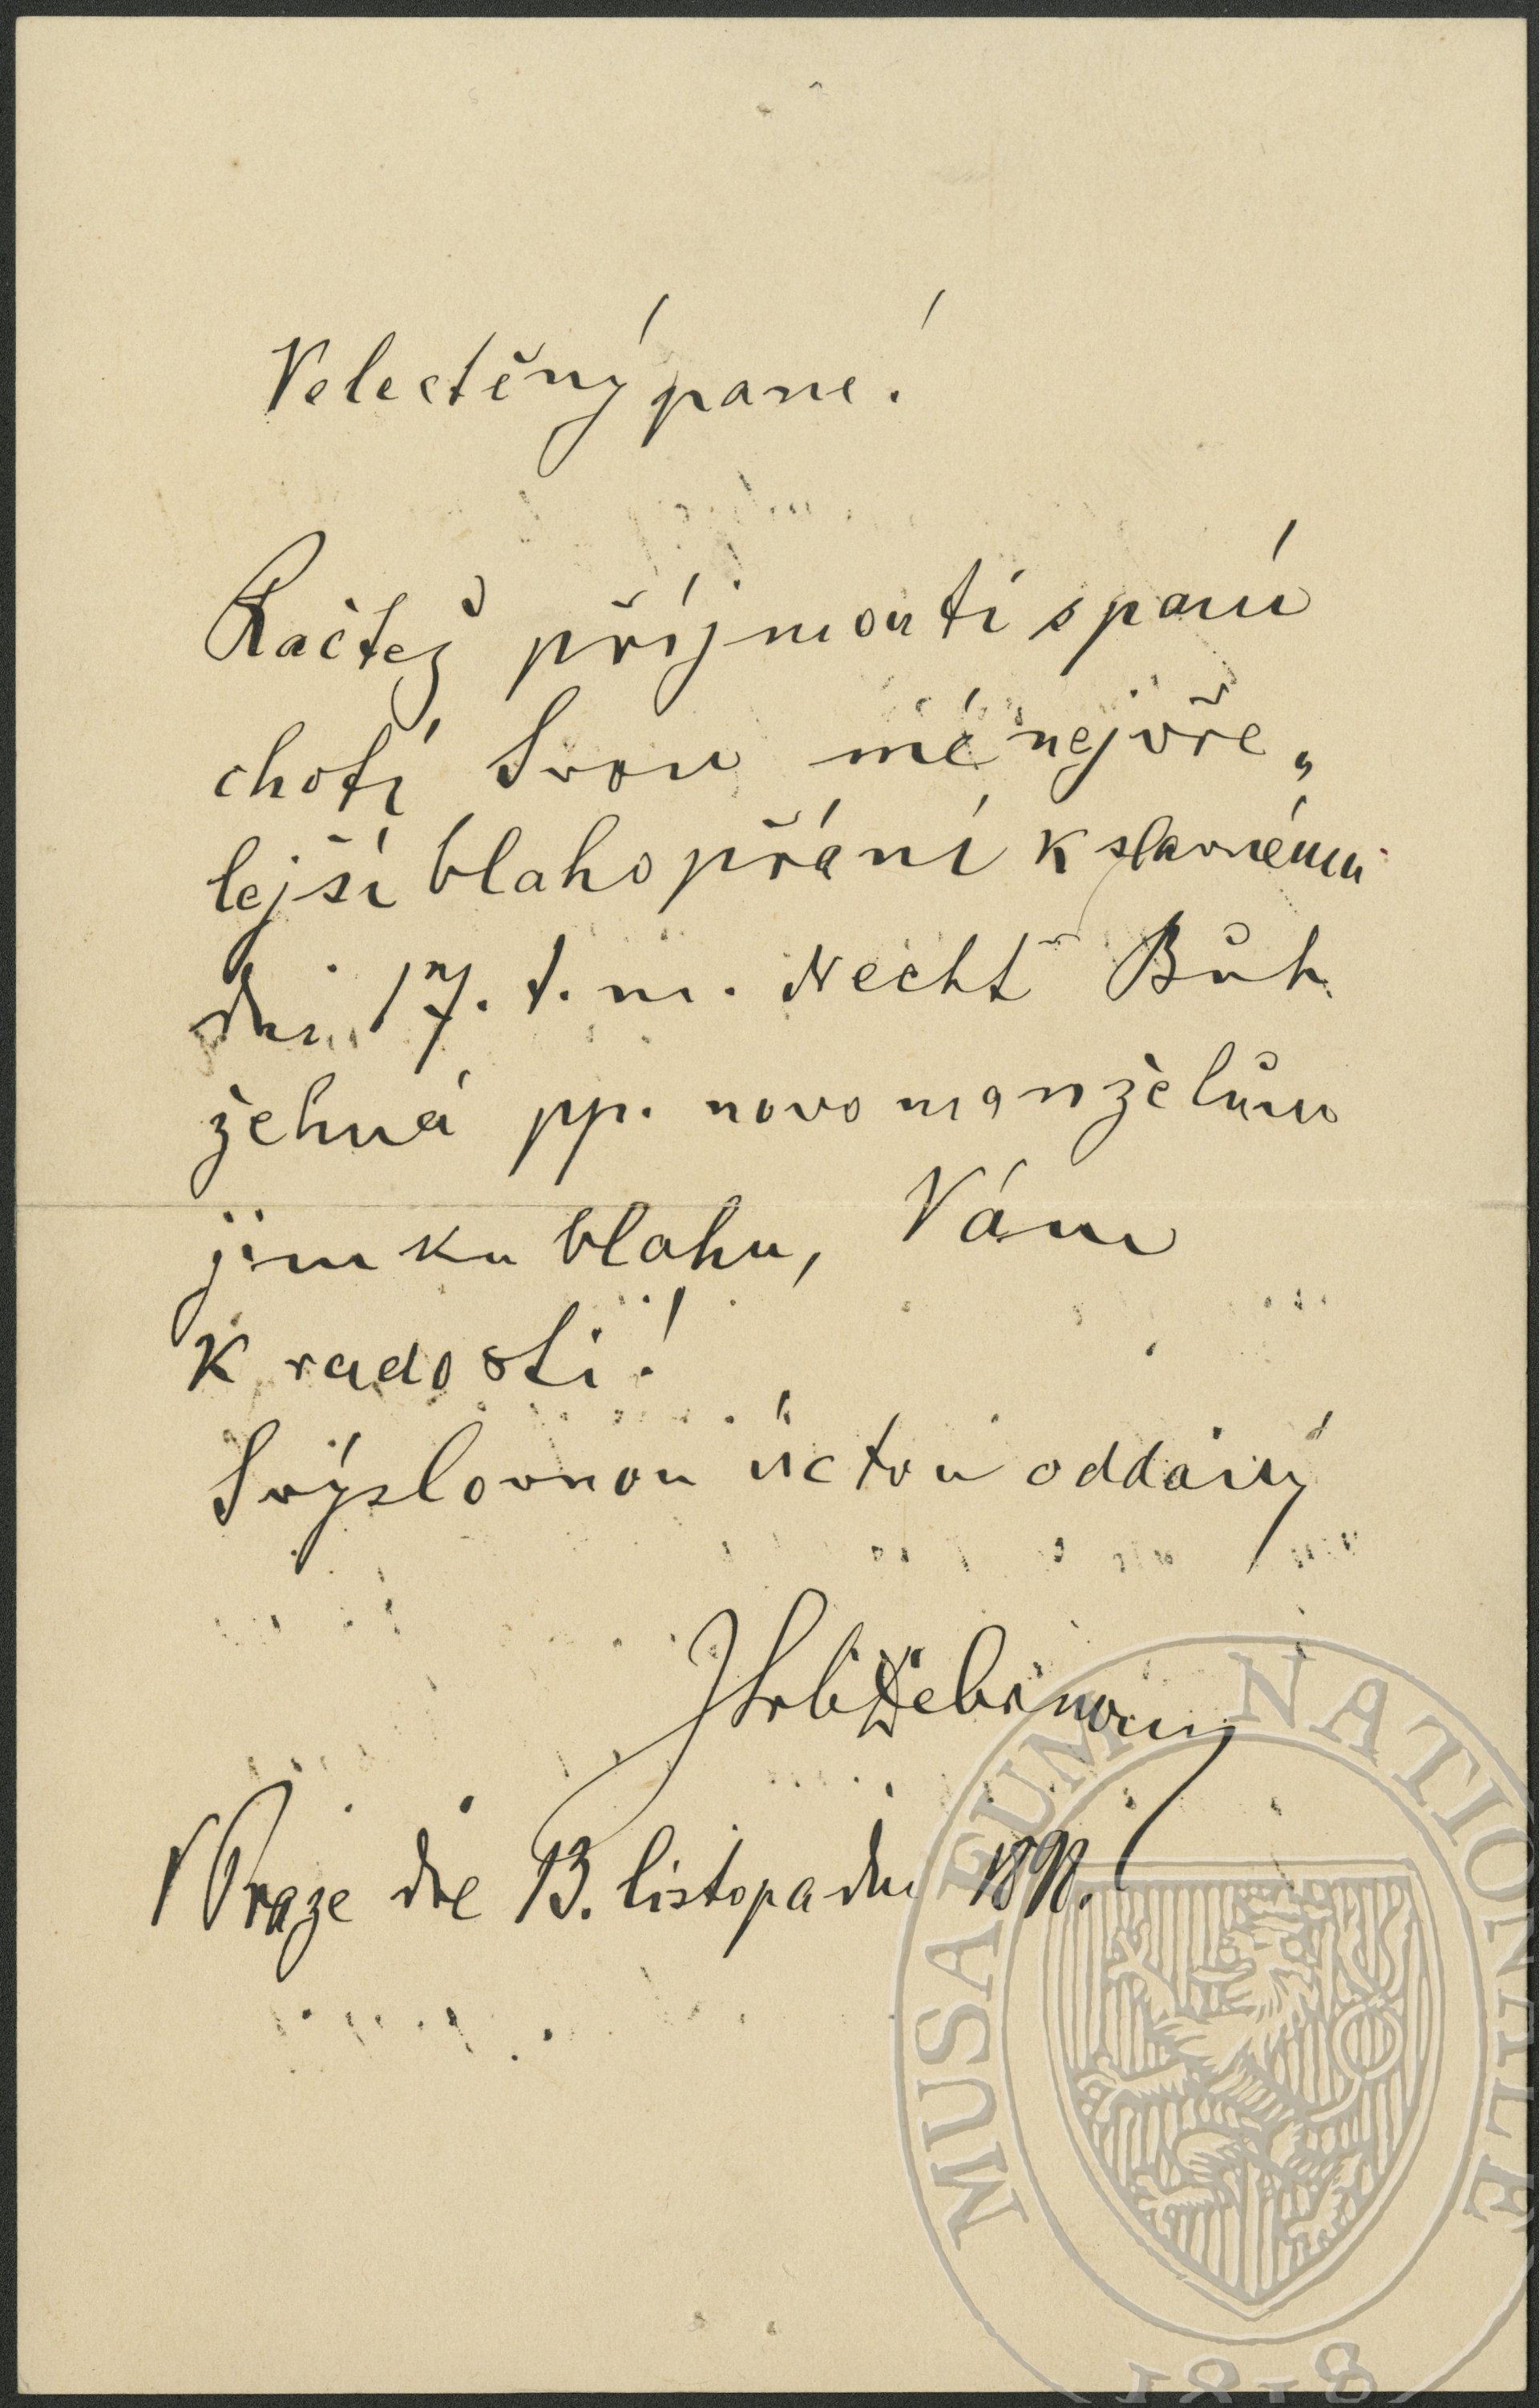 Velectěný pane!
Račtež příjmouti s paní
chotí Svou mé nejvře„
lejší blahopřání k slavnému
dni 17. t. m. Nechť Bůh
žehná pp. novomanželům
jim ku blahu, Vám
k radosti!
S výslovnou úctou oddaný
JSrb Debrnov
V Praze dne 13. listopadu 1898.
MUSAEUM NATIONALE
1818